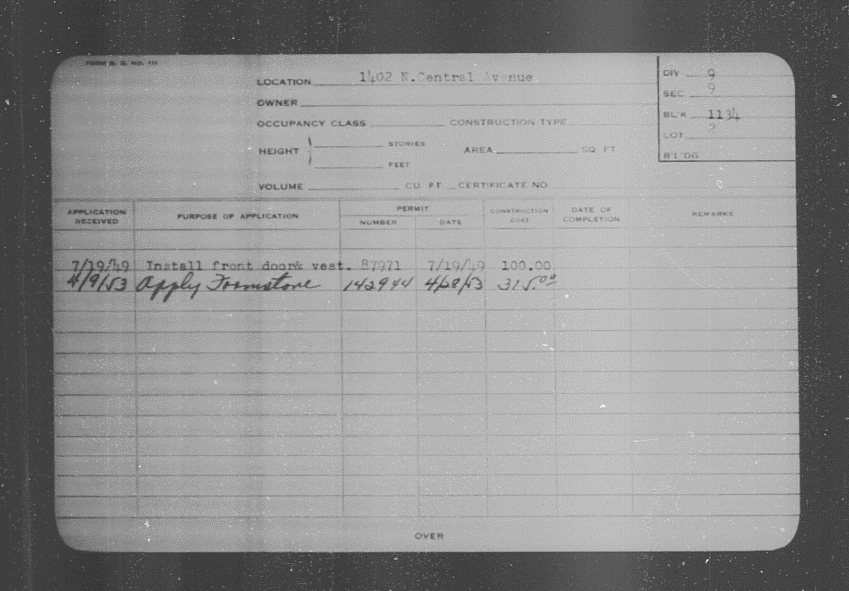 FORM B. D. NO. 111
LOCATION 1402 N. Central Avenue
DIV 9
OWNER
SEC 9
OCCUPANCY CLASS CONSTRUCTION TYPE
BL'K 1134
LOT 2
HEIGHT STORIES AREA SQ FT
FEET
B'L'DG
VOLUME CU FT CERTIFICATE NO.
APPLICATION RECEIVED PURPOSE OF APPLICATION PERMIT NUMBER DATE CONSTRUCTION COST DATE OF COMPLETION REMARKS
7/19/49 Install front door& vest. 87971 7/19/49 100.00
4/9/53 Apply Formstone 142944 4/28/53 315.00
OVER